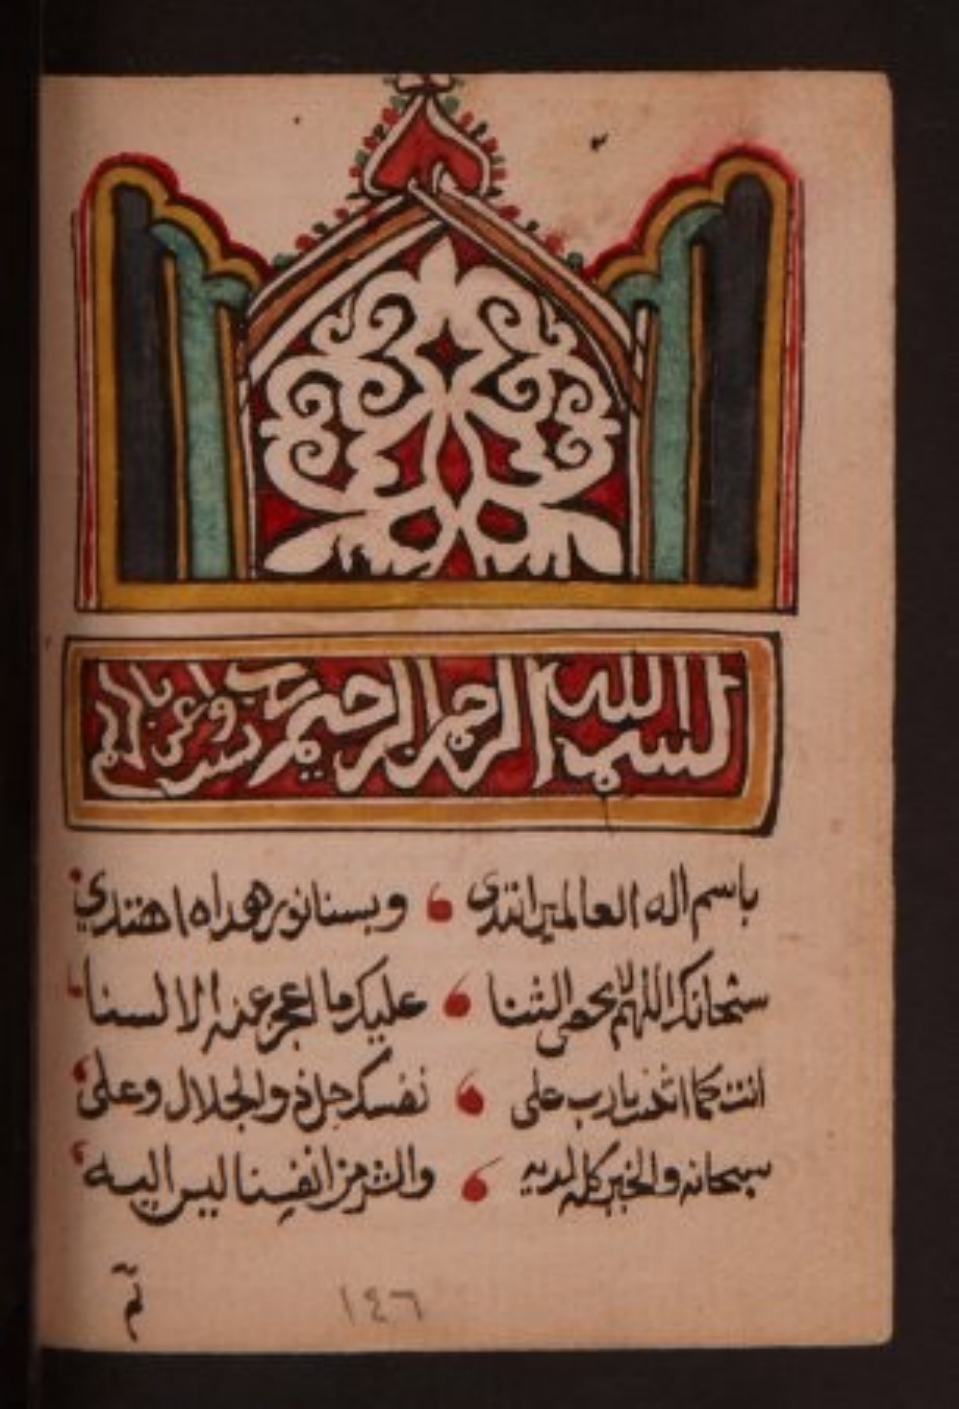 بسم الله الرحمن الرحيم رب يسر واعن يا كريم
باسم اله العالمين ابتدى وبسنا نور هداه اهتدي
سبحانك اللهم لا يحصى الثنا عليك ما اعجز عنه الالسنا
انت كما اثنيت يا رب على نفسك جل ذو الجلال وعلى
سبحانه والخير كله لديه والشر من انفسنا ليس اليه
ثم
١٤٦